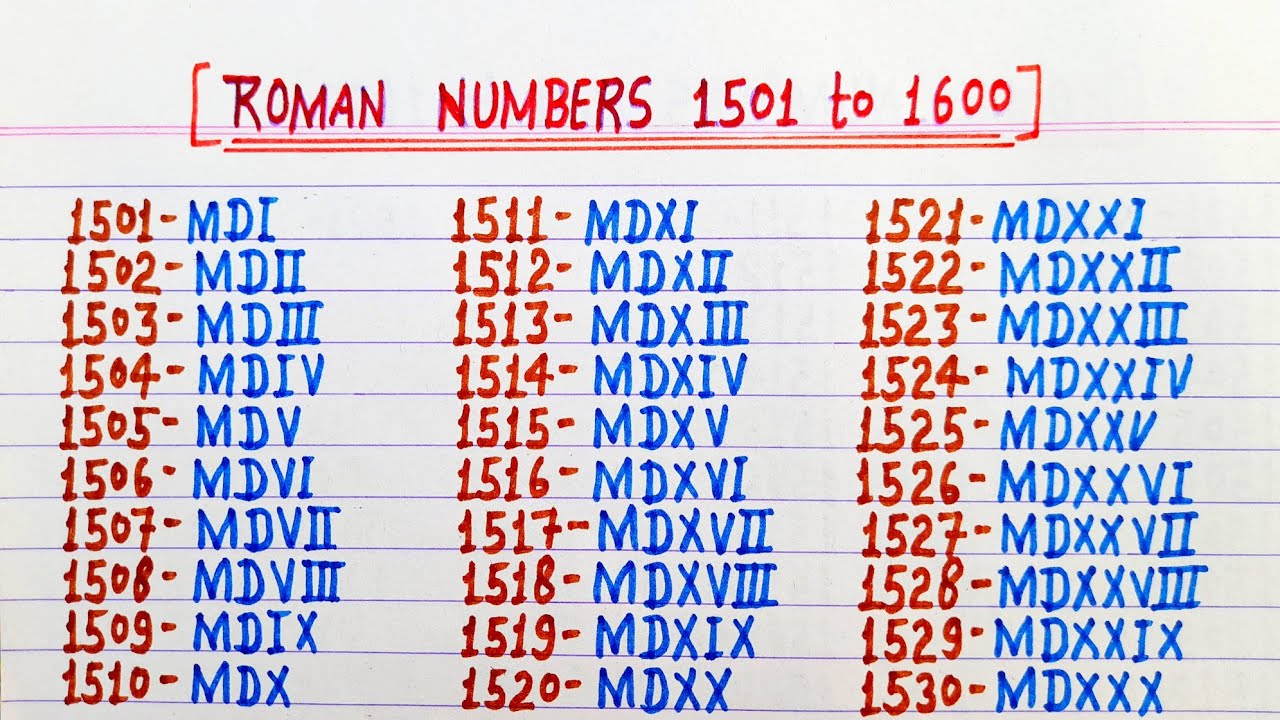 [ROMAN NUMBERS 1501 to 1600]
1501- MDI
1502- MDII
1503- MDIII
1504- MDIV
1505- MDV
1506- MDVI
1507- MDVII
1508- MDVIII
1509- MDIX
1510- MDX
1511- MDXI
1512- MDXII
1513- MDXIII
1514- MDXIV
1515- MDXV
1516- MDXVI
1517- MDXVII
1518- MDXVIII
1519- MDXIX
1520- MDXX
1521- MDXXI
1522- MDXXII
1523- MDXXIII
1524- MDXXIV
1525- MDXXV
1526- MDXXVI
1527- MDXXVII
1528- MDXXVIII
1529- MDXXIX
1530- MDXXX